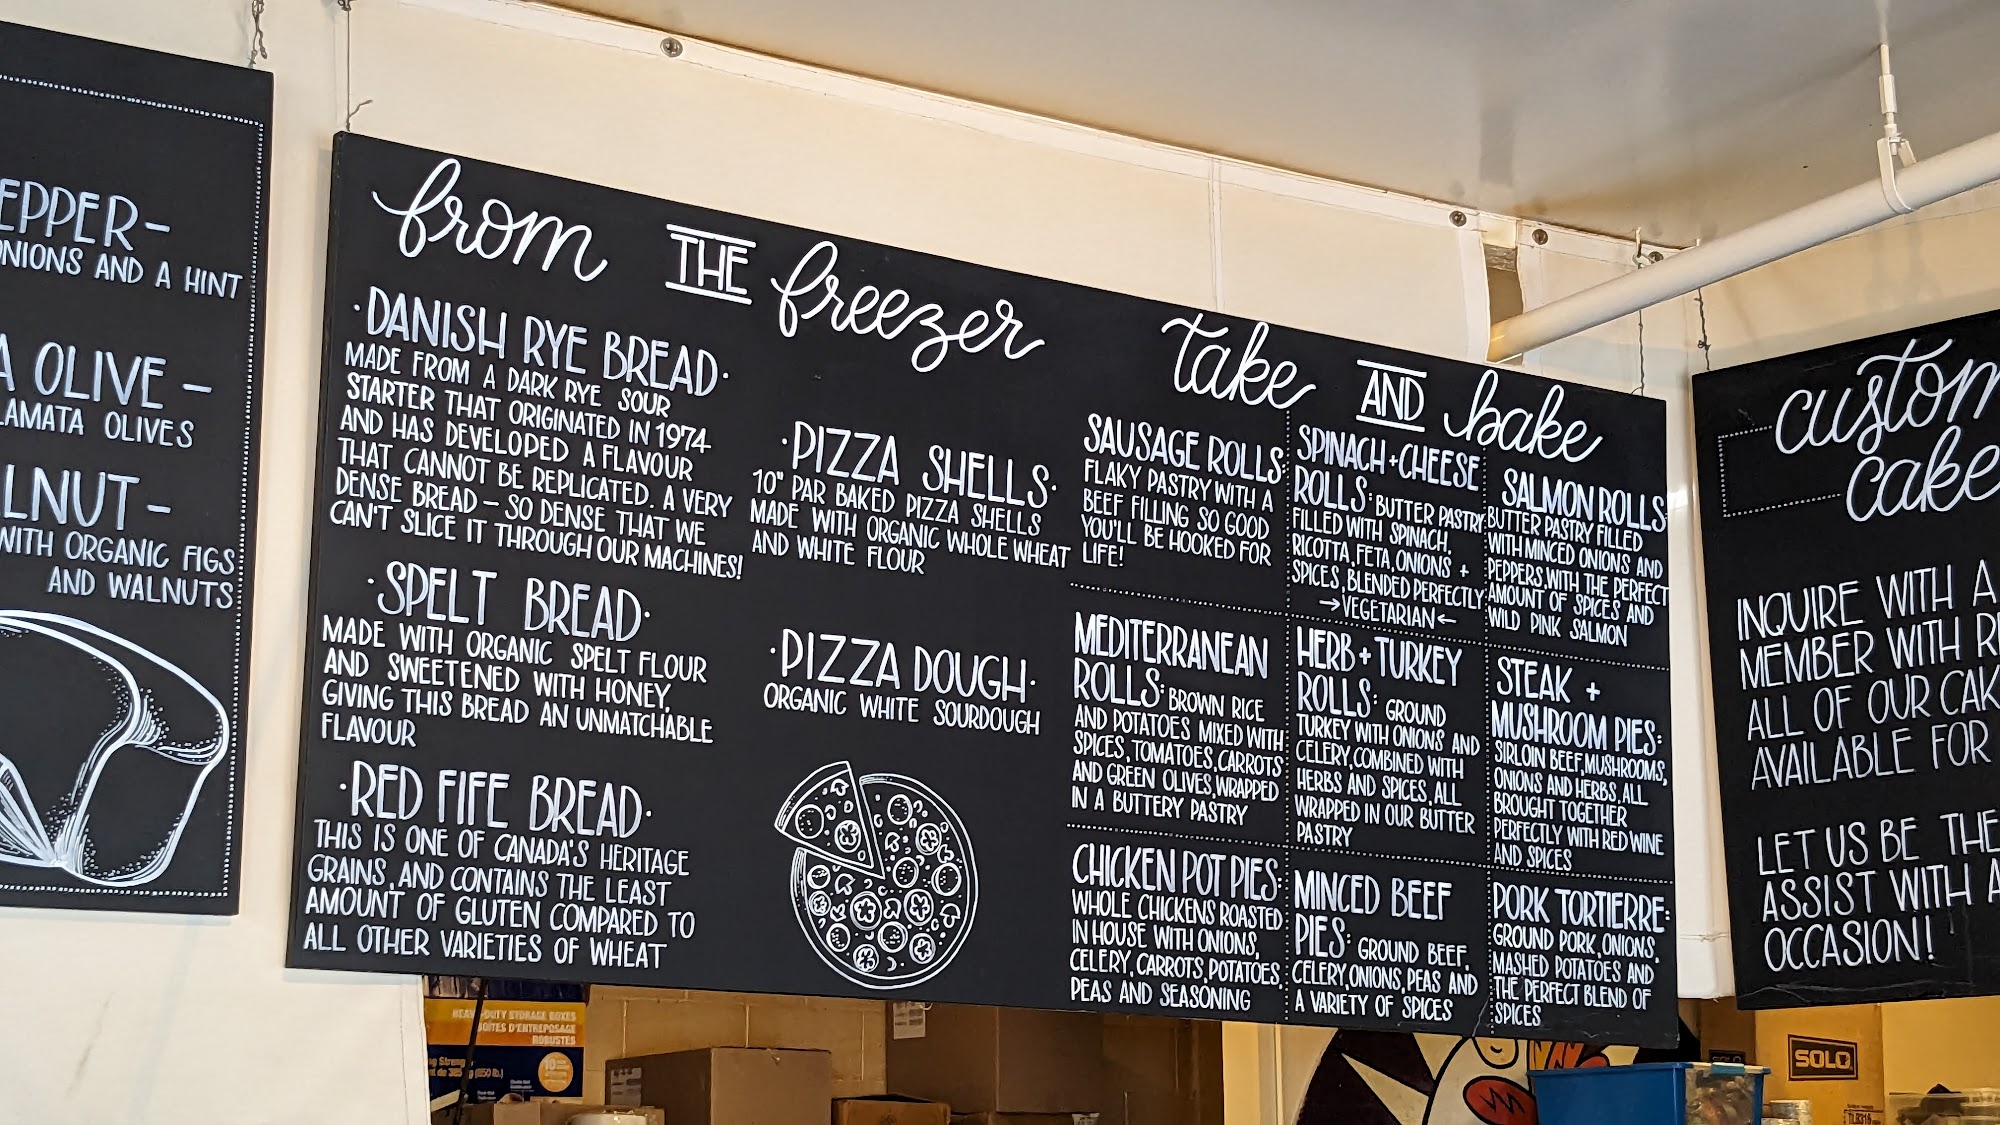 EPPER-
ONIONS AND A HINT
A OLIVE -
LAMATA OLIVES
LNUT -
WITH ORGANIC FIGS
AND WALNUTS
from THE freezer
·DANISH RYE BREAD·
MADE FROM A DARK RYE SOUR
STARTER THAT ORIGINATED IN 1974
AND HAS DEVELOPED A FLAVOUR
THAT CANNOT BE REPLICATED. A VERY
DENSE BREAD - SO DENSE THAT WE
CAN'T SLICE IT THROUGH OUR MACHINES!
·SPELT BREAD·
MADE WITH ORGANIC SPELT FLOUR
AND SWEETENED WITH HONEY,
GIVING THIS BREAD AN UNMATCHABLE
FLAVOUR
·RED FIFE BREAD·
THIS IS ONE OF CANADA'S HERITAGE
GRAINS, AND CONTAINS THE LEAST
AMOUNT OF GLUTEN COMPARED TO
ALL OTHER VARIETIES OF WHEAT
·PIZZA SHELLS·
10" PAR BAKED PIZZA SHELLS
MADE WITH ORGANIC WHOLE WHEAT
AND WHITE FLOUR
·PIZZA DOUGH·
ORGANIC WHITE SOURDOUGH
take AND bake
SAUSAGE ROLLS:
FLAKY PASTRY WITH A
BEEF FILLING SO GOOD
YOU'LL BE HOOKED FOR
LIFE!
SPINACH+CHEESE
ROLLS: BUTTER PASTRY
FILLED WITH SPINACH,
RICOTTA, FETA, ONIONS +
SPICES, BLENDED PERFECTLY
→VEGETARIAN←
SALMON ROLLS:
BUTTER PASTRY FILLED
WITH MINCED ONIONS AND
PEPPERS, WITH THE PERFECT
AMOUNT OF SPICES AND
WILD PINK SALMON
MEDITERRANEAN
ROLLS: BROWN RICE
AND POTATOES MIXED WITH
SPICES, TOMATOES, CARROTS
AND GREEN OLIVES, WRAPPED
IN A BUTTERY PASTRY
HERB+TURKEY
ROLLS: GROUND
TURKEY WITH ONIONS AND
CELERY, COMBINED WITH
HERBS AND SPICES, ALL
WRAPPED IN OUR BUTTER
PASTRY
STEAK +
MUSHROOM PIES:
SIRLOIN BEEF, MUSHROOMS,
ONIONS AND HERBS, ALL
BROUGHT TOGETHER
PERFECTLY WITH RED WINE
AND SPICES
CHICKEN POT PIES:
WHOLE CHICKENS ROASTED
IN HOUSE WITH ONIONS,
CELERY, CARROTS, POTATOES,
PEAS AND SEASONING
MINCED BEEF
PIES: GROUND BEEF,
CELERY, ONIONS, PEAS AND
A VARIETY OF SPICES
PORK TORTIERRE:
GROUND PORK, ONIONS,
MASHED POTATOES AND
THE PERFECT BLEND OF
SPICES
custom
cake
INQUIRE WITH A
MEMBER WITH
ALL OF OUR CAK
AVAILABLE FOR
LET US BE THE
ASSIST WITH A
OCCASION!
HEAVY-DUTY STORAGE BOXES
BOÎTES D'ENTREPOSAGE
ROBUSTES
SOLO